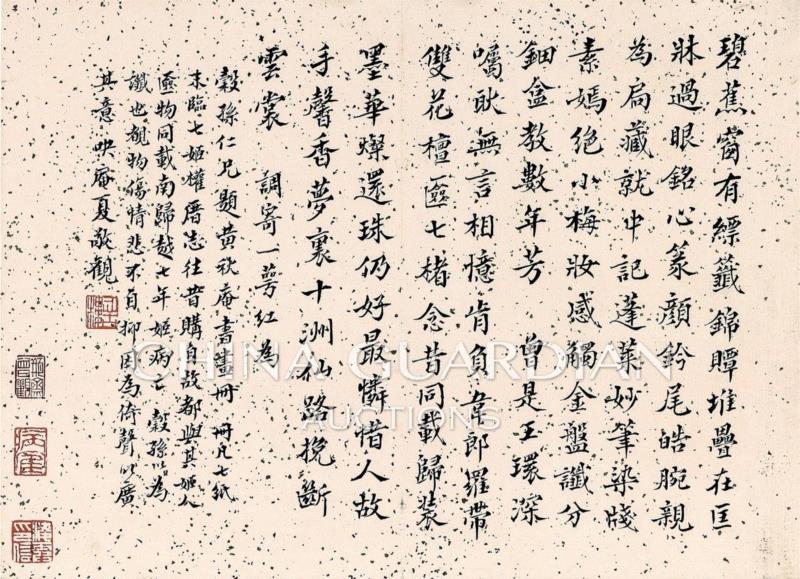 碧蕉窗有縹籤錦贉堆疊在匡
牀過眼銘心篆顏鈐尾皓腕親
為扃藏就中記蓬萊妙筆染牋
素嫣絕小梅妝感觸金盤讖分
鈿盒教數年芳 曾是玉環深
囑耿無言相憶肯負韋郎羅帶
雙花檀匳七楮念昔同載歸裝
墨華燦還珠仍好最憐惜人故
手馨香夢裏十洲仙路挽斷
雲裳 調寄一萼紅為
穀孫仁兄題黃秋庵書畫冊冊凡七紙
末臨七姬權厝志往昔購自故都與其姬人
匳物同載南歸越七年姬病亡穀孫以為
讖也覩物傷情悲不自抑因為倚聲以廣
其意 吷庵夏敬觀
CHINA GUARDIAN
AUCTIONS